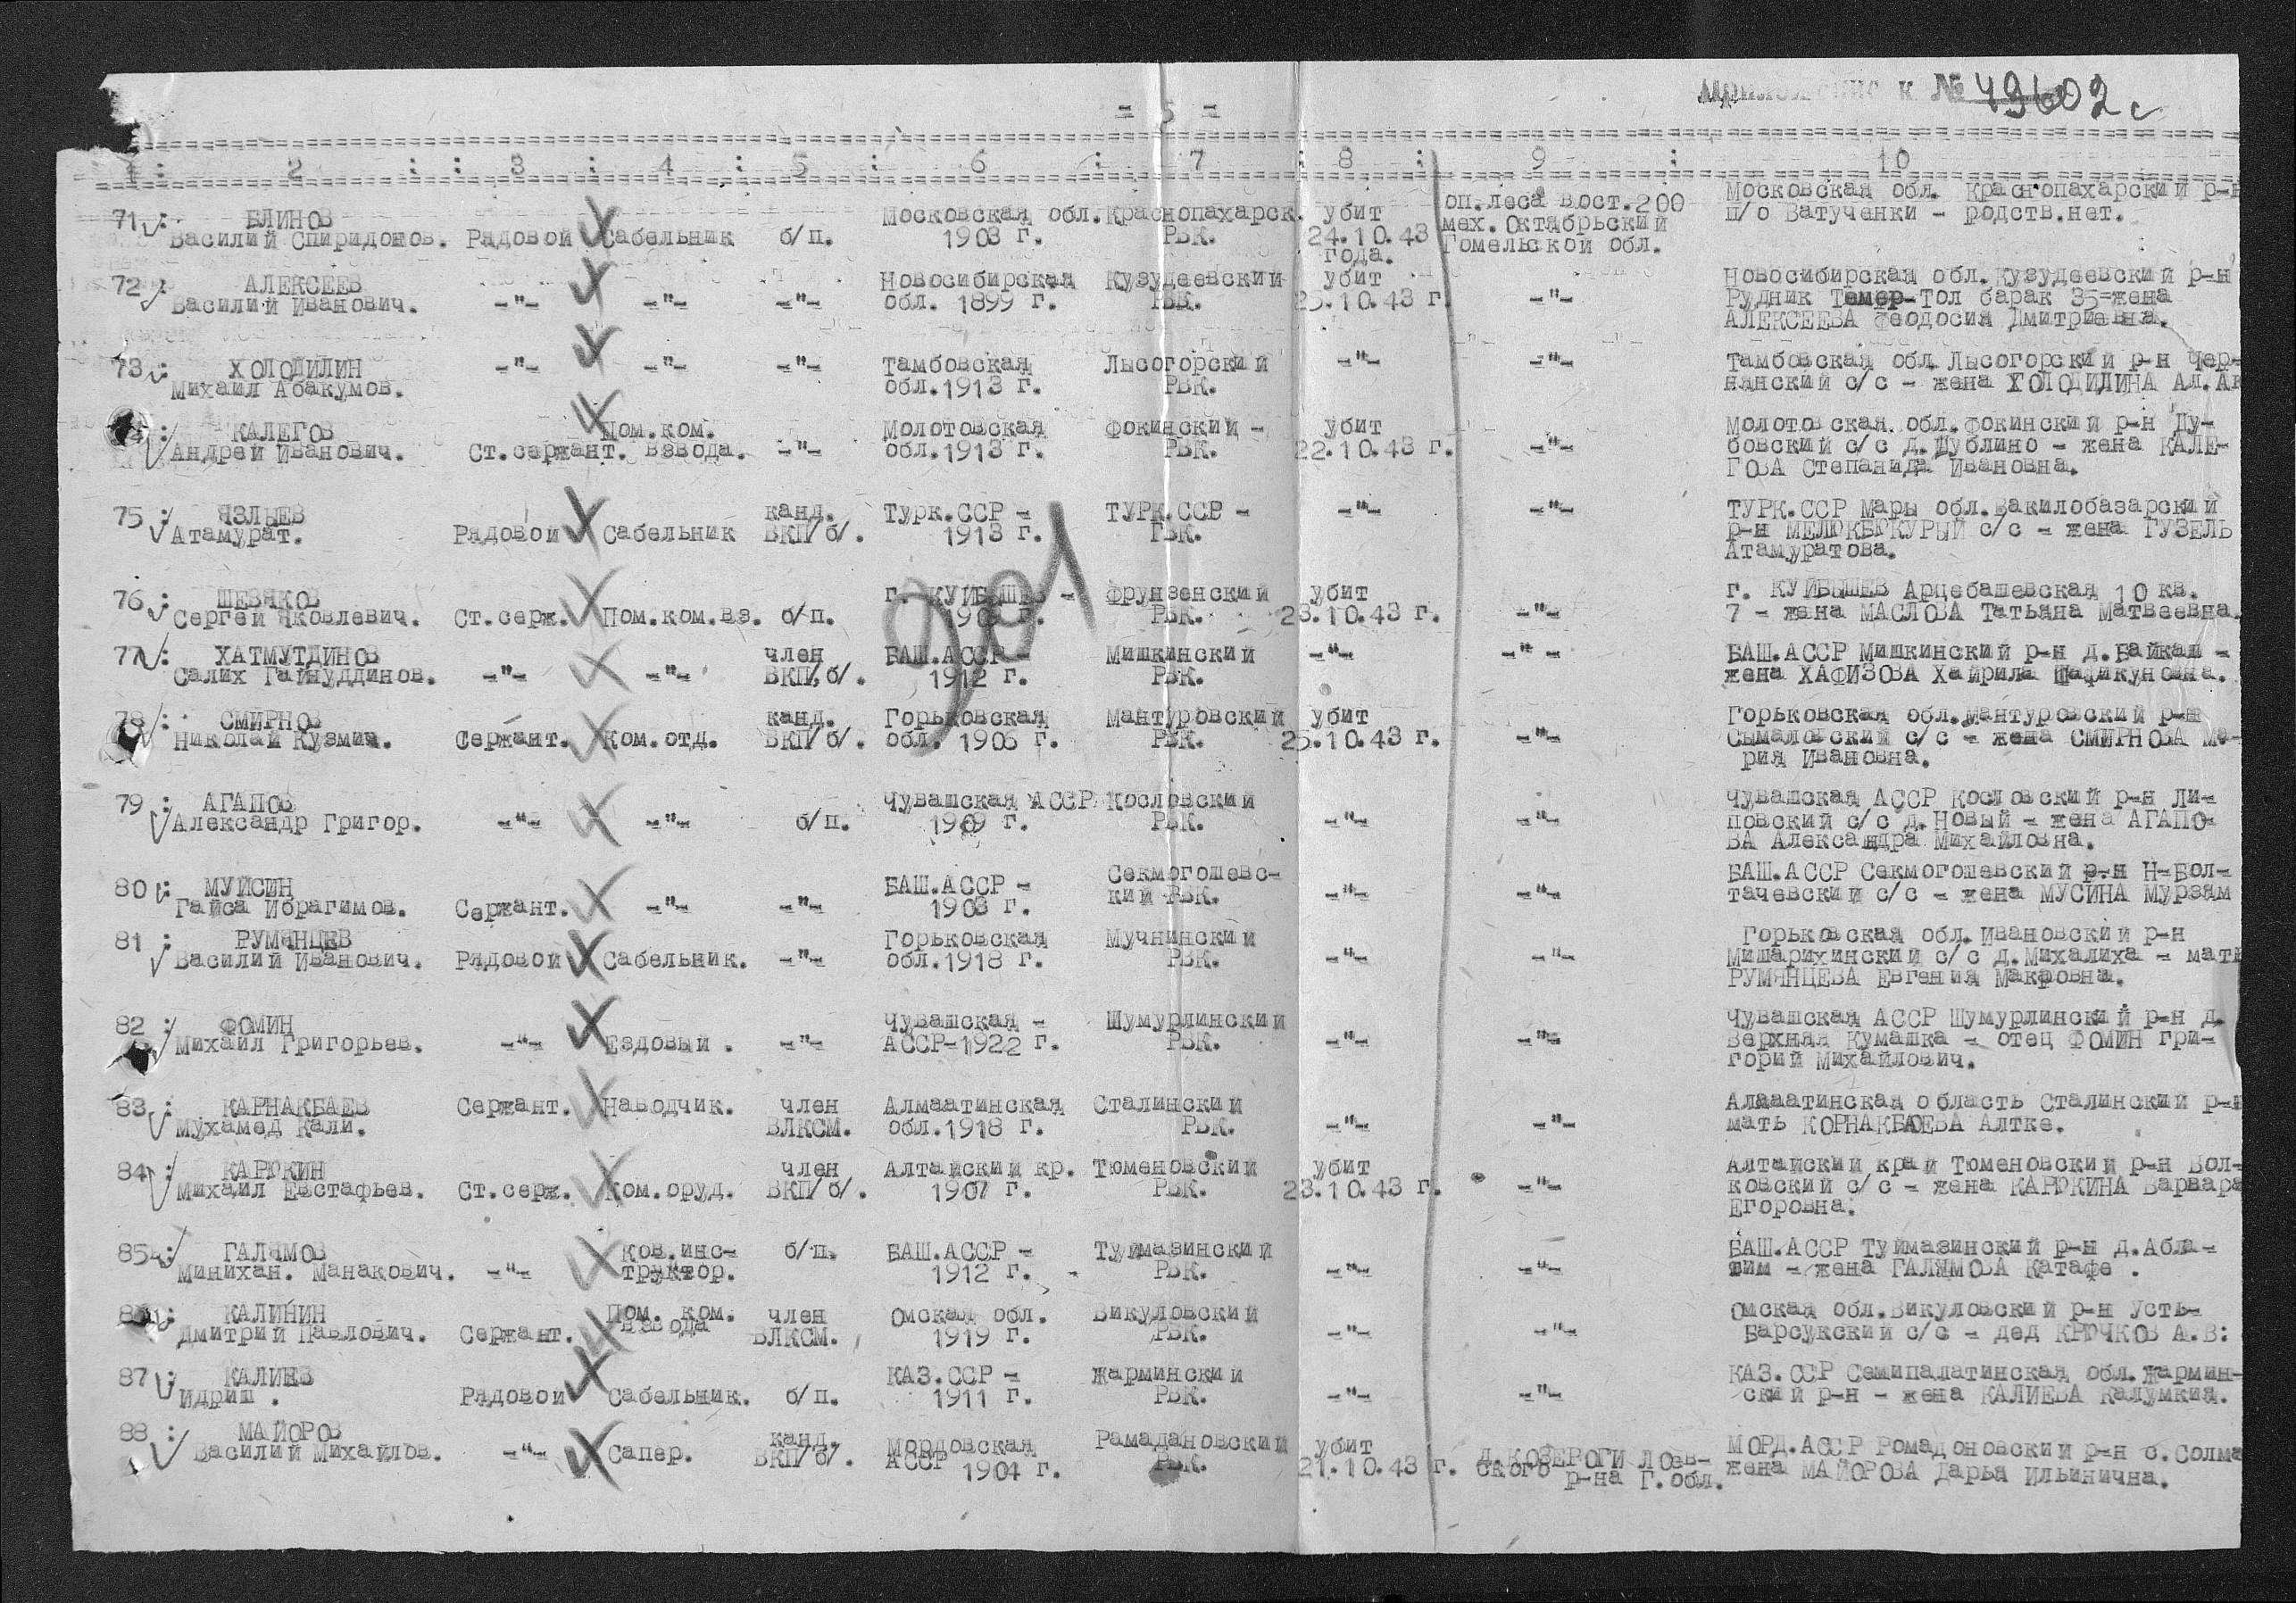 к № 49602с
= 5 =
1 : 2 : : 3 : 4 : 5 : 6 : 7 : 8 : 9 : 10
71 : БЛИНОВ Московская обл. Краснопахарск. убит оп.леса вост.200 Московская обл. Краснопахарский р-н
Василий Спиридонов. Рядовой Сабельник б/п. 1903 г. РВК. 24.10.43 мех. Октябрьский п/о Ватученки - родств.нет.
года. Гомельской обл.
72 : АЛЕКСЕЕВ Новосибирская Кузудеевский убит Новосибирская обл. Кузудеевский р-н
Василий Иванович. -"- -"- -"- обл. 1899 г. РВК. 25.10.43 г. -"- Рудник Темер-Тол барак 35=жена
АЛЕКСЕЕВА Феодосия Дмитриевна.
73 : ХОЛОДИЛИН -"- -"- -"- Тамбовская Лысогорский -"- -"- Тамбовская обл. Лысогорский р-н Чер-
Михаил Абакумов. обл.1913 г. РВК. нянский с/с - жена ХОЛОДИЛИНА Ал.Ак
: КАЛЕГОВ Пом.ком. Молотовская Фокинский - убит Молотовская обл.Фокинский р-н Ду-
Андрей Иванович. Ст.сержант. взвода. -"- обл.1913 г. РВК. 22.10.43 г. -"- бовский с/с д.Шублино - жена КАЛЕ-
ГОВА Степанида Ивановна.
75 : ЯЗЛЫЕВ канд. Турк.ССР - ТУРК.ССР - -"- -"- ТУРК.ССР Мары обл.Вакилобазарский
Атамурат. Рядовой Сабельник ВКП/б/. 1913 г. РВК. р-н МЕЛЮКБЮКУРЫЙ с/с - жена ГУЗЕЛЬ
Атамуратова.
901
76 : ШЕВЯКОВ г. КУЙБЫШЕВ - Фрунзенский убит г. КУЙБЫШЕВ Арцебашевская 10 кв.
Сергей Яковлевич. Ст.серж. Пом.ком.вз. б/п. г. РВК. 23.10.43 г. -"- 7 - жена МАСЛОВА Татьяна Матвеевна.
77 : ХАТМУТДИНОВ член БАШ.АССР - Мишкинский -"- -"- БАШ.АССР Мишкинский р-н д.Байкаш -
Салих Гайнуддинов. -"- -"- ВКП/б/. 1912 г. РВК. жена ХАФИЗОВА Хайрила Шафикуновна.
78 : СМИРНОВ канд. Горьковская Мантуровский убит Горьковская обл.Мантуровский р-н
Николай Кузмич. Сержант. Ком.отд. ВКП/б/. обл. 1905 г. РВК. 25.10.43 г. -"- Сымаловский с/с - жена СМИРНОВА Ма-
рия Ивановна.
79 : АГАПОВ Чувашская АССР Кословский Чувашская АССР Кословский р-н Ли-
Александр Григор. -"- -"- б/п. 1909 г. РВК. -"- -"- повский с/с д.Новый - жена АГАПО-
ВА Александра Михайловна.
80 : МУЙСИН БАШ.АССР - Секмогошевс- БАШ.АССР Секмогошевский р-н Н-Бол-
Гайса Ибрагимов. Сержант. -"- -"- 1903 г. кий РВК. -"- -"- тачевский с/с - жена МУСИНА Мурзям
81 : РУМЯНЦЕВ Горьковская Мучнинский Горьковская обл.Ивановский р-н
Василий Иванович. Рядовой Сабельник. -"- обл.1918 г. РВК. -"- -"- Мишарихинский с/с д.Михалиха - мать
РУМЯНЦЕВА Евгения Макровна.
82 : ФОМИН Чувашская - Шумурлинский Чувашская АССР Шумурлинский р-н д.
Михаил Григорьев. -"- Ездовый. -"- АССР-1922 г. РВК. -"- -"- Верхняя Кумашка - отец ФОМИН Гри-
горий Михайлович.
83 : КАРНАКБАЕВ Сержант. Наводчик. член Алмаатинская Сталинский Алмаатинская область Сталинский р-н
Мухамед Кали. ВЛКСМ. обл.1918 г. РВК. -"- -"- мать КОРНАКБАЕВА Алтке.
84 : КАРЮКИН член Алтайский кр. Тюменовский убит Алтайский край Тюменовский р-н Вол-
Михаил Евстафьев. Ст.серж. Ком.оруд. ВКП/б/. 1907 г. РВК. 23.10.43 г. -"- ковский с/с - жена КАРЮКИНА Варвара
Егоровна.
85 : ГАЛЯМОВ Ков.инс- б/п. БАШ.АССР - Туймазинский БАШ.АССР Туймазинский р-н д.Абла-
Минихан. Манакович. -"- труктор. 1912 г. РВК. -"- -"- жена ГАЛЯМОВА Катафе .
: КАЛИНИН Пом. ком. член Омская обл. Викуловский Омская обл.Викуловский р-н Усть-
Дмитрий Павлович. Сержант. взвода ВЛКСМ. 1919 г. РВК. -"- -"- Барсукский с/с - дед КРЮЧКОВ А.В:
87 : КАЛИЕВ КАЗ.ССР - Жарминский КАЗ.ССР Семипалатинская обл.Жармин-
Идриш . Рядовой Сабельник. б/п. 1911 г. РВК. -"- -"- ский р-н - жена КАЛИЕВА Калумкия.
88 : МАЙОРОВ канд. Мордовская Рамадановский убит д.КОЗЕРОГИ Лоев- МОРД.АССР Ромадоновский р-н с.Солма
Василий Михайлов. -"- Сапер. ВКП/б/. АССР 1904 г. РВК. 21.10.43 г. ского р-на Г.обл. жена МАЙОРОВА Дарья Ильинична.